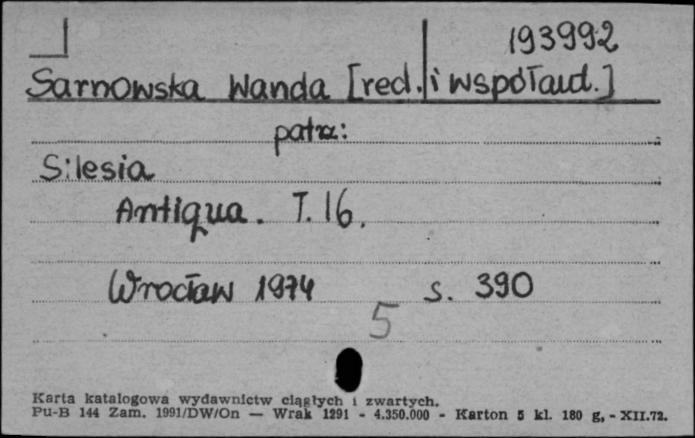 193992
Sarnowska Wanda [red. i współaut.]
patrz:
Silesia
Antiqua. T. 16.
Wrocław 1974 s. 390
5
Karta katalogowa wydawnictw ciągłych i zwartych.
Pu-B 144 Zam. 1991/DW/On — Wrak 1291 - 4.350.000 - Karton 5 kl. 180 g, - XII.72.